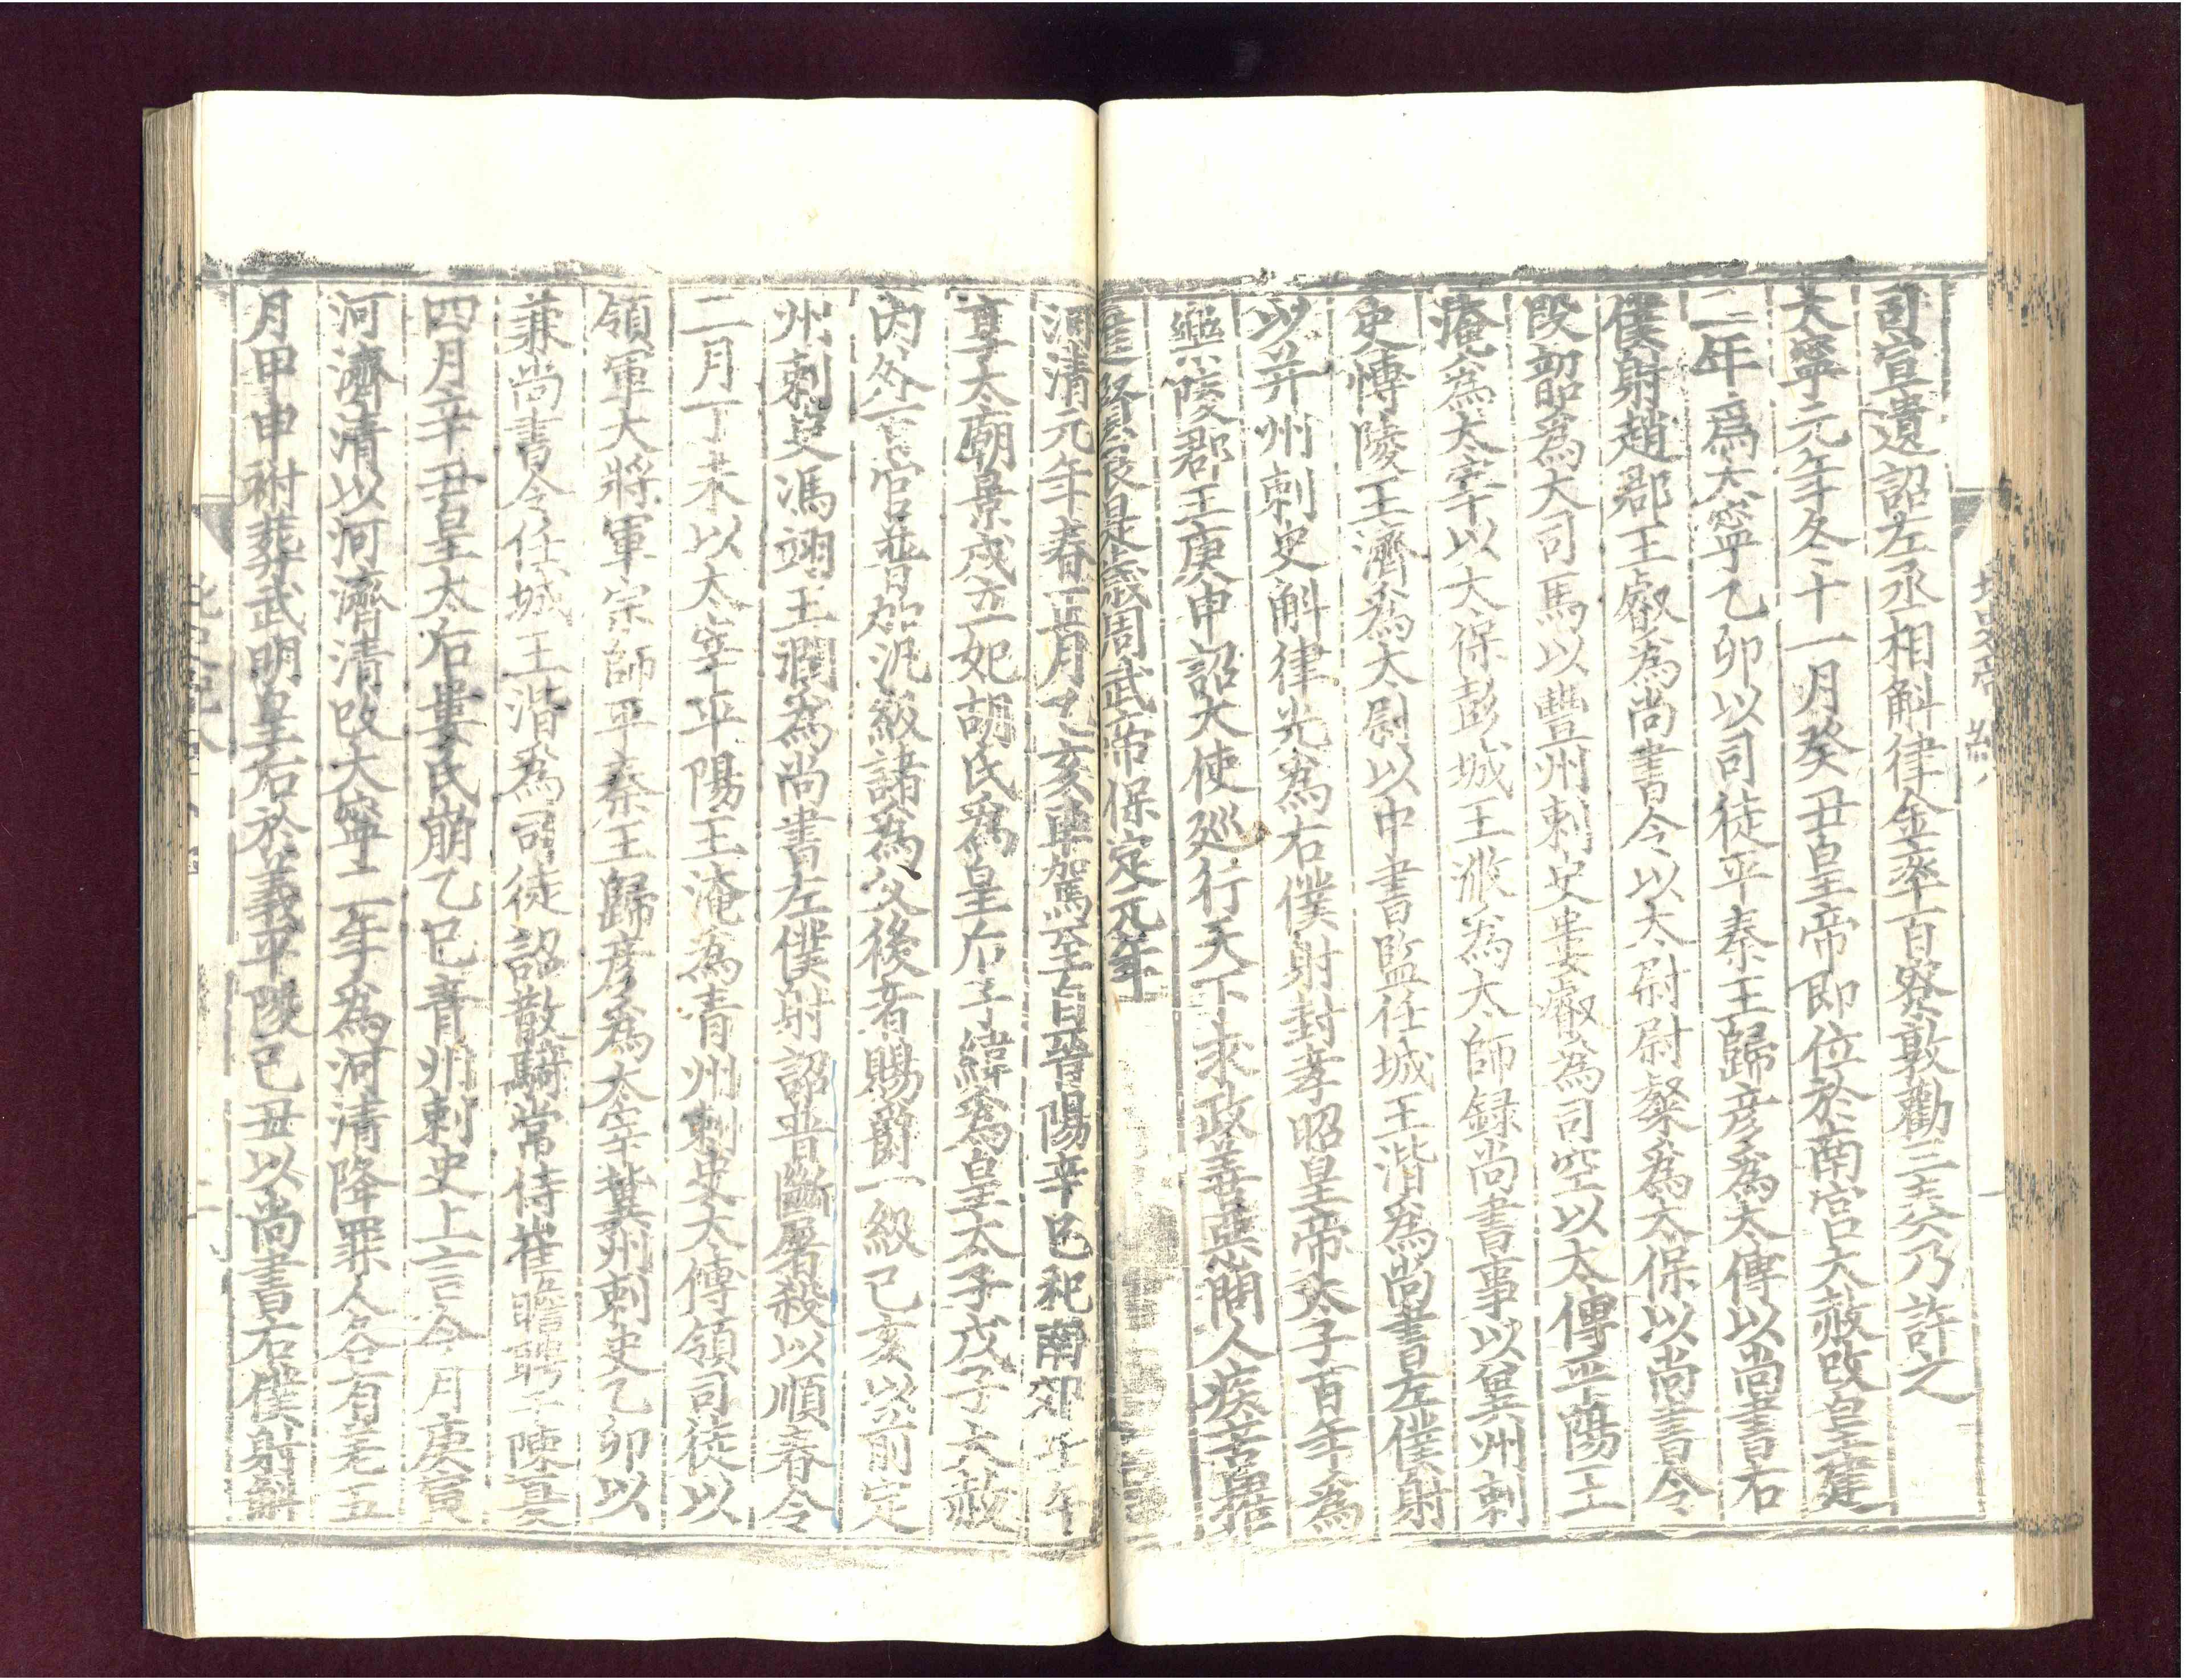 司宣遺詔左丞相斛律金率百寮敦勸三奏乃許之
大寧元年冬十一月癸丑皇帝即位於南宮大赦改皇建
二年爲太寧乙卯以司徒平秦王歸彦爲太傅以尚書右
僕射趙郡王叡爲尚書令以太尉尉粲爲太保以尚書令
段韶爲大司馬以豐州刺史婁叡爲司空以太傅平陽王
淹爲太宰以太保彭城王浟爲太師録尚書事以冀州刺
史博陵王濟爲太尉以中書監任城王湝爲尚書左僕射
以并州刺史斛律光爲右僕射封孝昭皇帝太子百年爲
樂陵郡王庚申詔大使巡行天下求政善惡問人疾苦擢
進賢良是歳周武帝保定元年
河清元年春正月乙亥車駕至自晉陽辛巳祀南郊壬午
享太廟景戌立妃胡氏爲皇后子緯爲皇太子戊子大赦
内外百官普加汎級諸爲父後者賜爵一級己亥以前定
州刺史馮翊王潤爲尚書左僕射詔普斷屠殺以順春令
二月丁未以太宰平陽王淹爲青州刺史太傅領司徒以
領軍大將軍宗師平秦王歸彦爲太宰冀州刺史乙卯以
兼尚書令任城王湝爲司徒詔散騎常侍崔瞻聘于陳夏
四月辛丑皇太后婁氏崩乙巳青州刺史上言今月庚寅
河濟清以河濟清改大寧二年爲河清降罪人各有差五
月甲申祔葬武明皇后於義平陵己丑以尚書右僕射斛